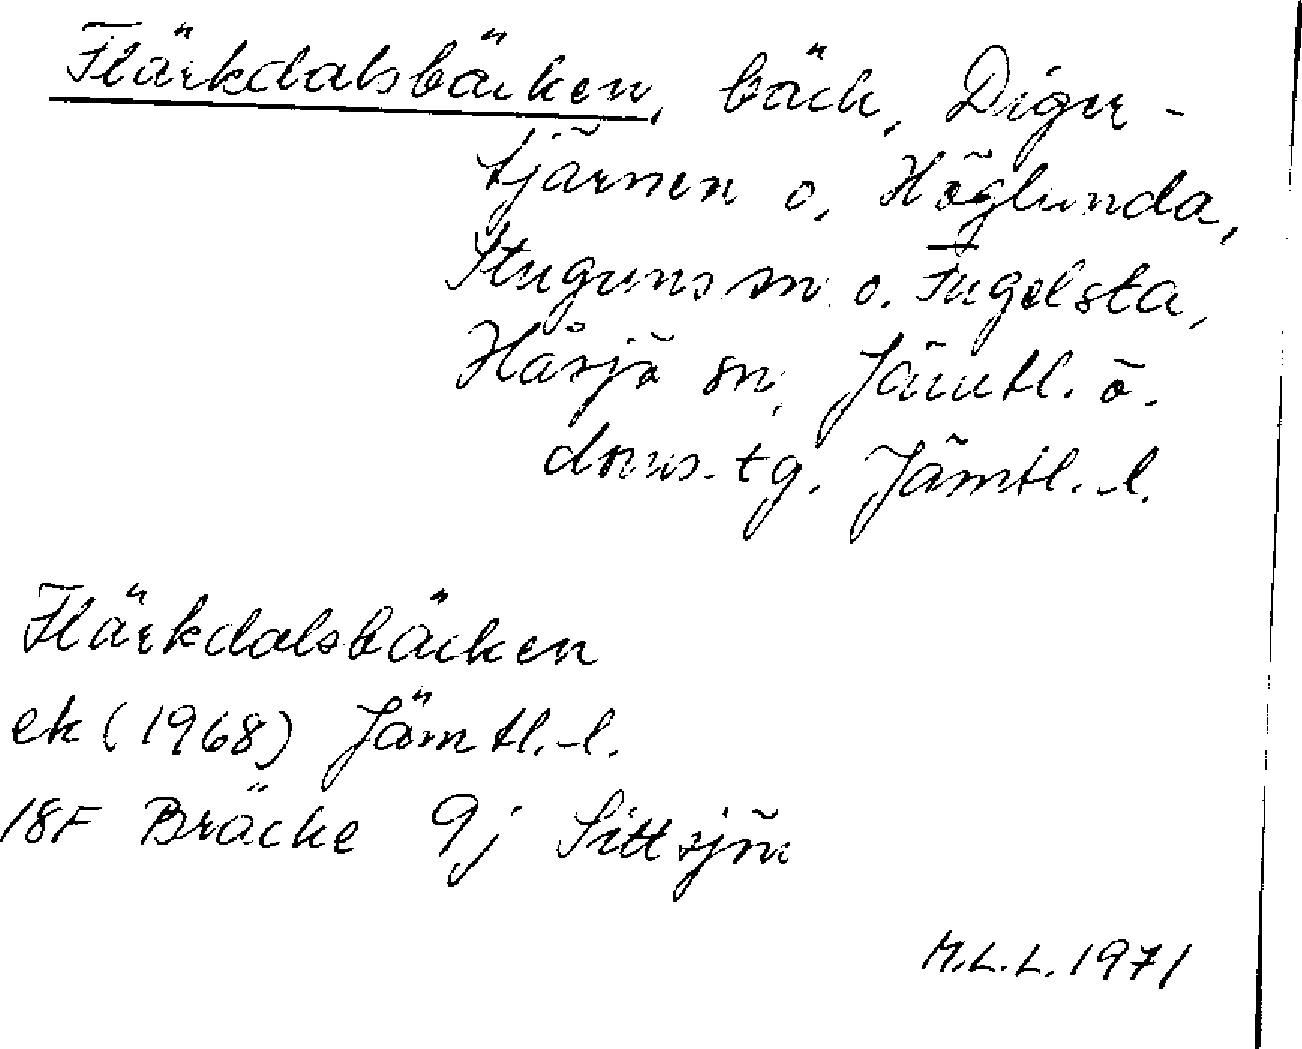 Flärkdalsbäcken, bäck, Diger-
tjärnen o. Höglunda,
Stuguns sn o. Fugelsta,
Håsjö sn, Jämtl. ö.
doms.tg. Jämtl.-l.
Flärkdalsbäcken
ek (1968) Jämtl.-l.
18F Bräcke 9j Sittsjön
M.L.L. 1971